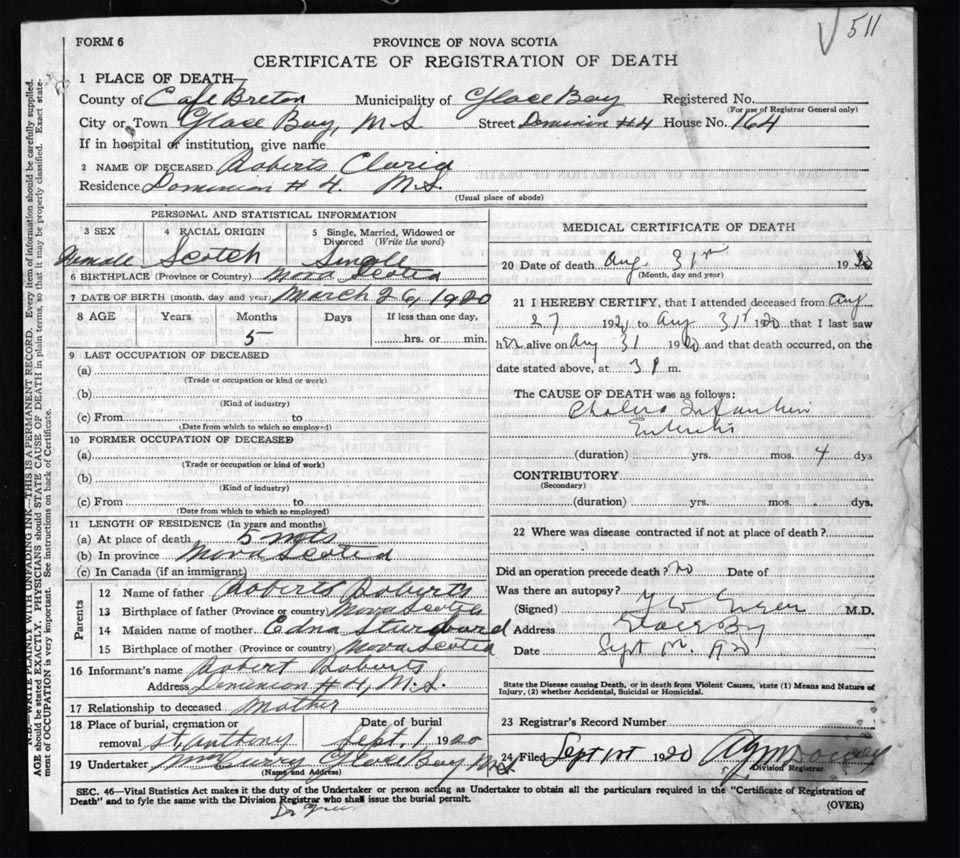 511
FORM 6
PROVINCE OF NOVA SCOTIA
CERTIFICATE OF REGISTRATION OF DEATH
1 PLACE OF DEATH
County of Cape Breton Municipality of Glace Bay Registered No.
(For use of Registrar General only)
City or Town Glace Bay, N.S. Street Dominion #4 House No. 164
If in hospital or institution, give name
2 NAME OF DECEASED Roberts
Residence Dominion #4. N.S.
(Usual place of abode)
PERSONAL AND STATISTICAL INFORMATION
3 SEX 4 RACIAL ORIGIN 5 Single, Married, Widowed or
Divorced (Write the word)
Female Scotch Single
6 BIRTHPLACE (Province or Country) Nova Scotia
7 DATE OF BIRTH (month, day and year) March 26, 1920
8 AGE Years Months Days If less than one day,
5 hrs. or min.
9 LAST OCCUPATION OF DECEASED
(a)
(Trade or occupation or kind or work)
(b)
(Kind of industry)
(c) From to
(Date from which to which so employed)
10 FORMER OCCUPATION OF DECEASED
(a)
(Trade or occupation or kind of work)
(b)
(Kind of industry)
(c) From to
(Date from which to which so employed)
11 LENGTH OF RESIDENCE (In years and months)
(a) At place of death 5 mts
(b) In province Nova Scotia
(c) In Canada (if an immigrant)
Parents
12 Name of father Roberts Roberts
13 Birthplace of father (Province or country) Nova Scotia
14 Maiden name of mother Edna
15 Birthplace of mother (Province or country) Nova Scotia
16 Informant's name Robert Roberts
Address Dominion #4, N.S.
17 Relationship to deceased Mother
18 Place of burial, cremation or Date of burial
removal St. Anthony Sept. 1 1920
19 Undertaker Curry Glace Bay N.S.
(Name and Address)
MEDICAL CERTIFICATE OF DEATH
20 Date of death Aug. 31st 1920
(Month, day and year)
21 I HEREBY CERTIFY, that I attended deceased from Aug
27 1920 to Aug 31st 1920 that I last saw
her alive on Aug 31 1920 and that death occurred, on the
date stated above, at 3 P m.
The CAUSE OF DEATH was as follows:
Cholera Infantum
Enteritis
(duration) yrs. mos. 4 dys
CONTRIBUTORY
(Secondary)
(duration) yrs. mos. dys.
22 Where was disease contracted if not at place of death?
Did an operation precede death? no Date of
Was there an autopsy?
(Signed) M.D.
Address Glace Bay
Date Sept 1920
State the Disease causing Death, or in death from Violent Causes, state (1) Means and Nature of
Injury, (2) whether Accidental, Suicidal or Homicidal.
23 Registrar's Record Number
24 Filed Sept 1st 1920
Division Registrar
SEC. 46—Vital Statistics Act makes it the duty of the Undertaker or person acting as Undertaker to obtain all the particulars required in the "Certificate of Registration of
Death" and to fyle the same with the Division Registrar who shall issue the burial permit.
(OVER)
N.B.—WRITE PLAINLY WITH UNFADING INK—THIS IS A PERMANENT RECORD. Every item of information should be carefully supplied.
AGE should be stated EXACTLY. PHYSICIANS should STATE CAUSE OF DEATH in plain terms, so that it may be properly classified. Exact state-
ment of OCCUPATION is very important. See instructions on back of Certificate.